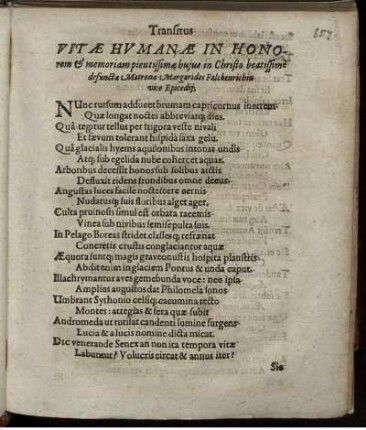 Transitus
VITÆ HVMANÆ IN HONO-
rem & memoriam pientissimæ hujus in Christo beatissimè
defunctæ Matronæ Margaridis Falckenrichiæ
vice Epicedij.
NUnc rursum adducet brumam capricornus inertem
Quæ longat noctes abbreviatq; dies.
Quâ tegitur tellus per frigora veste nivali
Et sævum tolerant hispida saxa gelu.
Quâ glacialis hyems aquilonibus intonat undis
Atq; sub egelida nube cohercet aquas.
Arbonbus decessit honos sub solibus arctis
Defluxit ridens frondibus omne decus.
Angustas luces facile noctescere cernis
Nudatusq; suis floribus alget ager.
Culta pruinosis simul est orbata racemis
Vinea sub nivibus semisepulta suis.
In Pelago Boreas stridet classesq; refrænat
Concretis crustis conglaciantur aquæ
Æquora suntq; magis graveonustis hospita planstris
Abdit enim in glaciem Pontus & unda caput.
Illachrymantur aves gemebunda voce: neo ipsa
Amplius angustos dat Philomela sonos
Umbrant Sythonio celsiq; cacumina tecto
Montes: attegias & fera quæq; subit
Andromeda ut rutilat candenti lumine surgens
Lucia & a lucis nomine dicta micat.
Dic venerande Senex an non ita tempora vitæ
Labuntur? Volucris circat & annus iter?
Sic